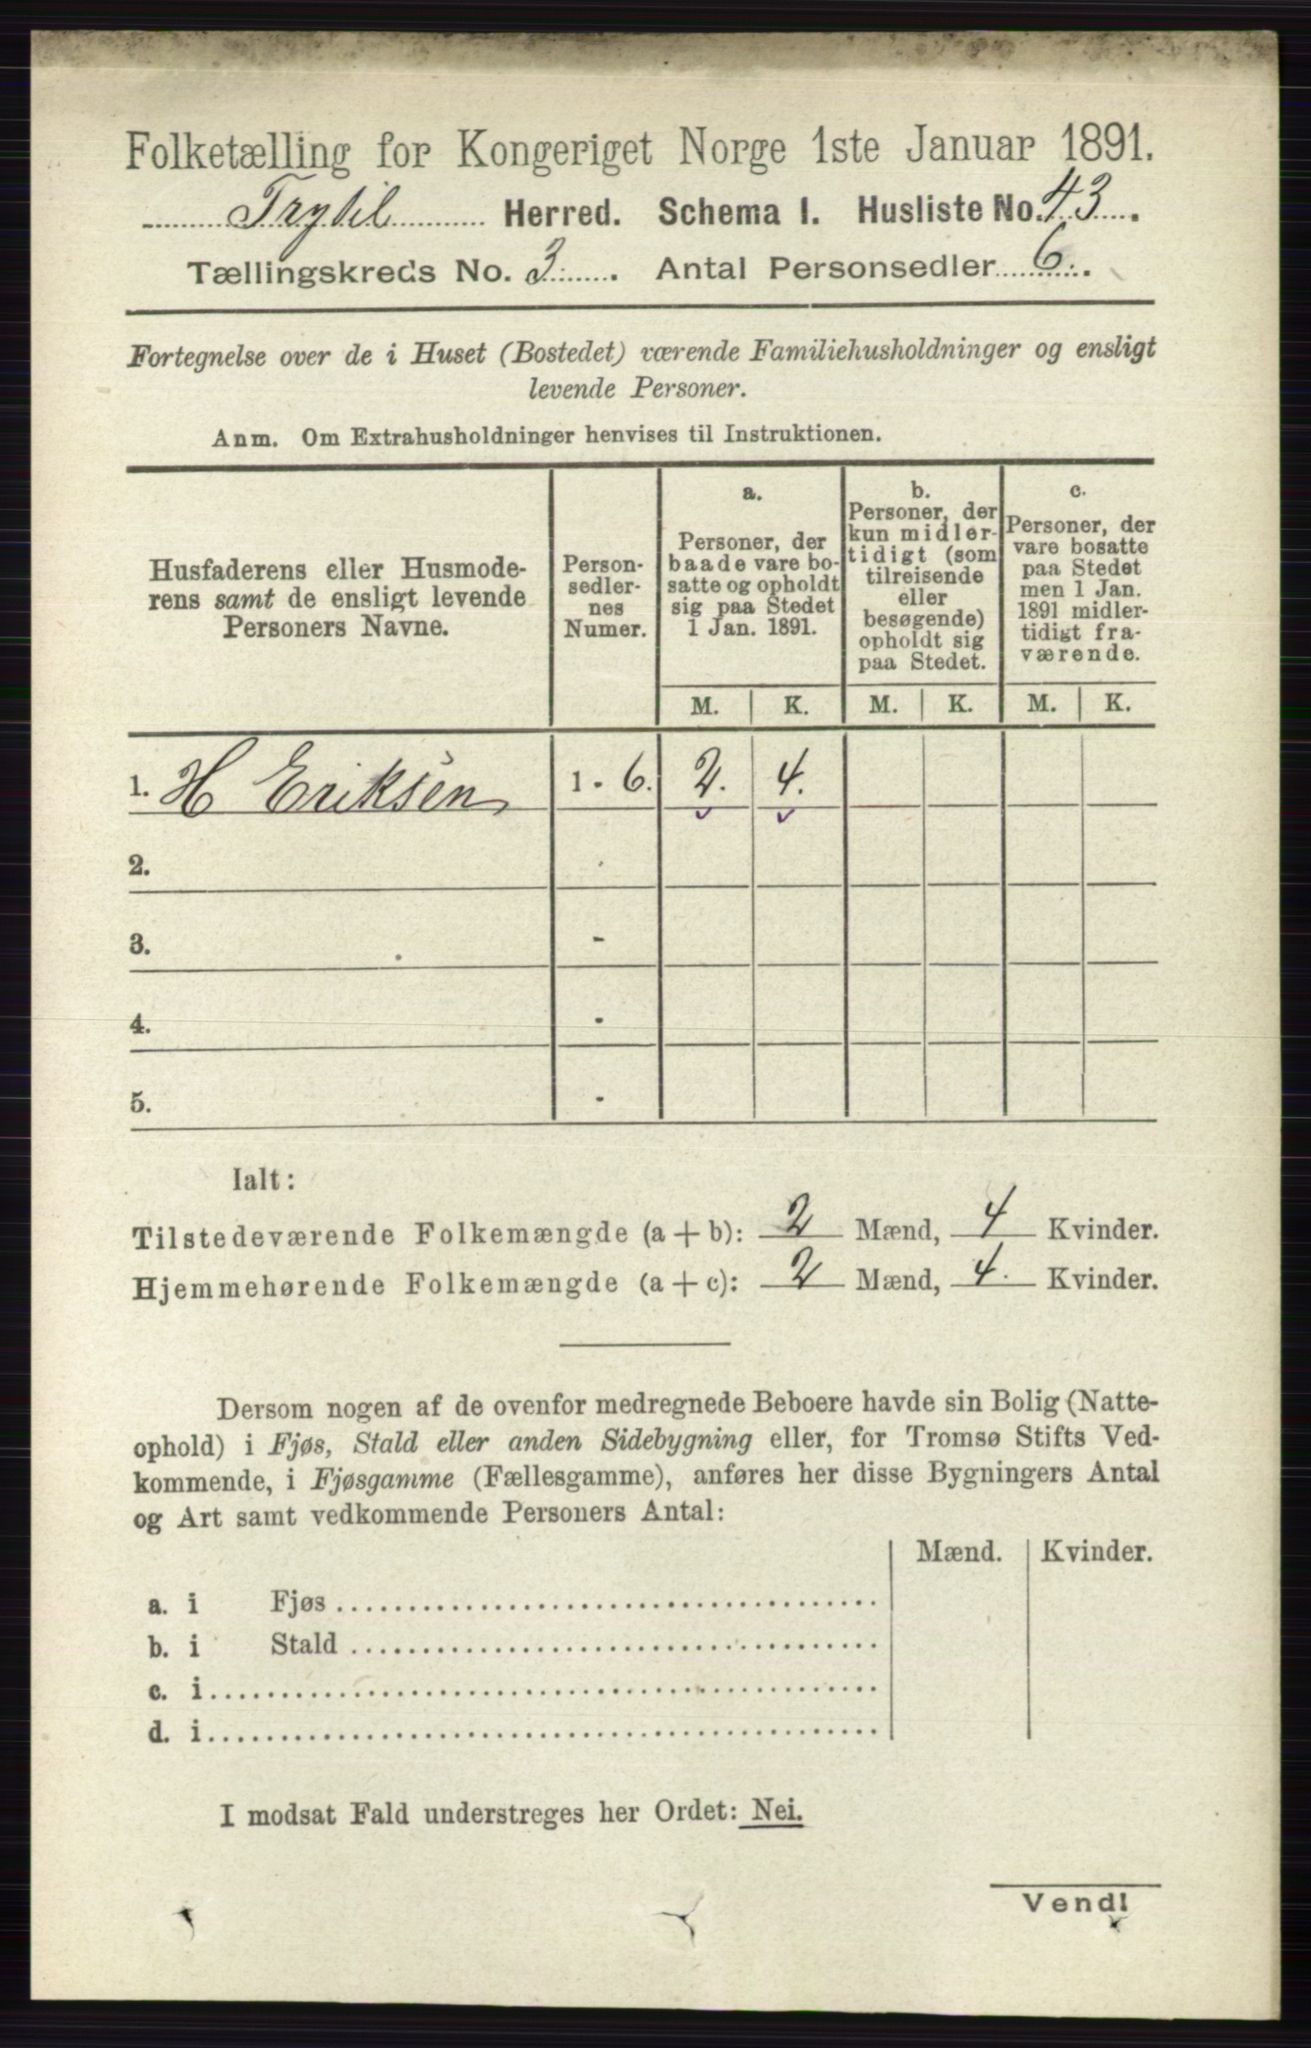 Folketælling for Kongeriget Norge 1ste Januar 1891.
Trysil Herred. Schema 1. Husliste No. 43.
Tællingskreds No. 3. Antal Personsedler 6.
Fortegnelse over de i Huset (Bostedet) værende Familiehusholdninger og ensligt
levende Personer.
Anm. Om Extrahusholdninger henvises til Instruktionen.
Husfaderens eller Husmode-
rens samt de ensligt levende
Personers Navne.
Person-
sedler-
nes
Numer.
a.
Personer, der
baade vare bo-
satte og opholdt
sig paa Stedet
1 Jan. 1891.
b.
Personer, der
kun midler-
tidigt (som
tilreisende
eller
besøgende)
opholdt sig
paa Stedet.
c.
Personer, der
vare bosatte
paa Stedet
men 1 Jan.
1891 midler-
tidigt fra-
værende.
M. K. M. K. M. K.
1. H Eriksen 1 - 6. 2. 4.
2.
3. -
4. -
5. -
Ialt:
Tilstedeværende Folkemængde (a + b): 2 Mænd, 4 Kvinder.
Hjemmehørende Folkemængde (a + c): 2 Mænd, 4. Kvinder.
Dersom nogen af de ovenfor medregnede Beboere havde sin Bolig (Natte-
ophold) i Fjøs, Stald eller anden Sidebygning eller, for Tromsø Stifts Ved-
kommende, i Fjøsgamme (Fællesgamme), anføres her disse Bygningers Antal
og Art samt vedkommende Personers Antal:
Mænd. Kvinder.
a. i Fjøs
b. i Stald
c. i
d. i
I modsat Fald understreges her Ordet: Nei.
Vend!